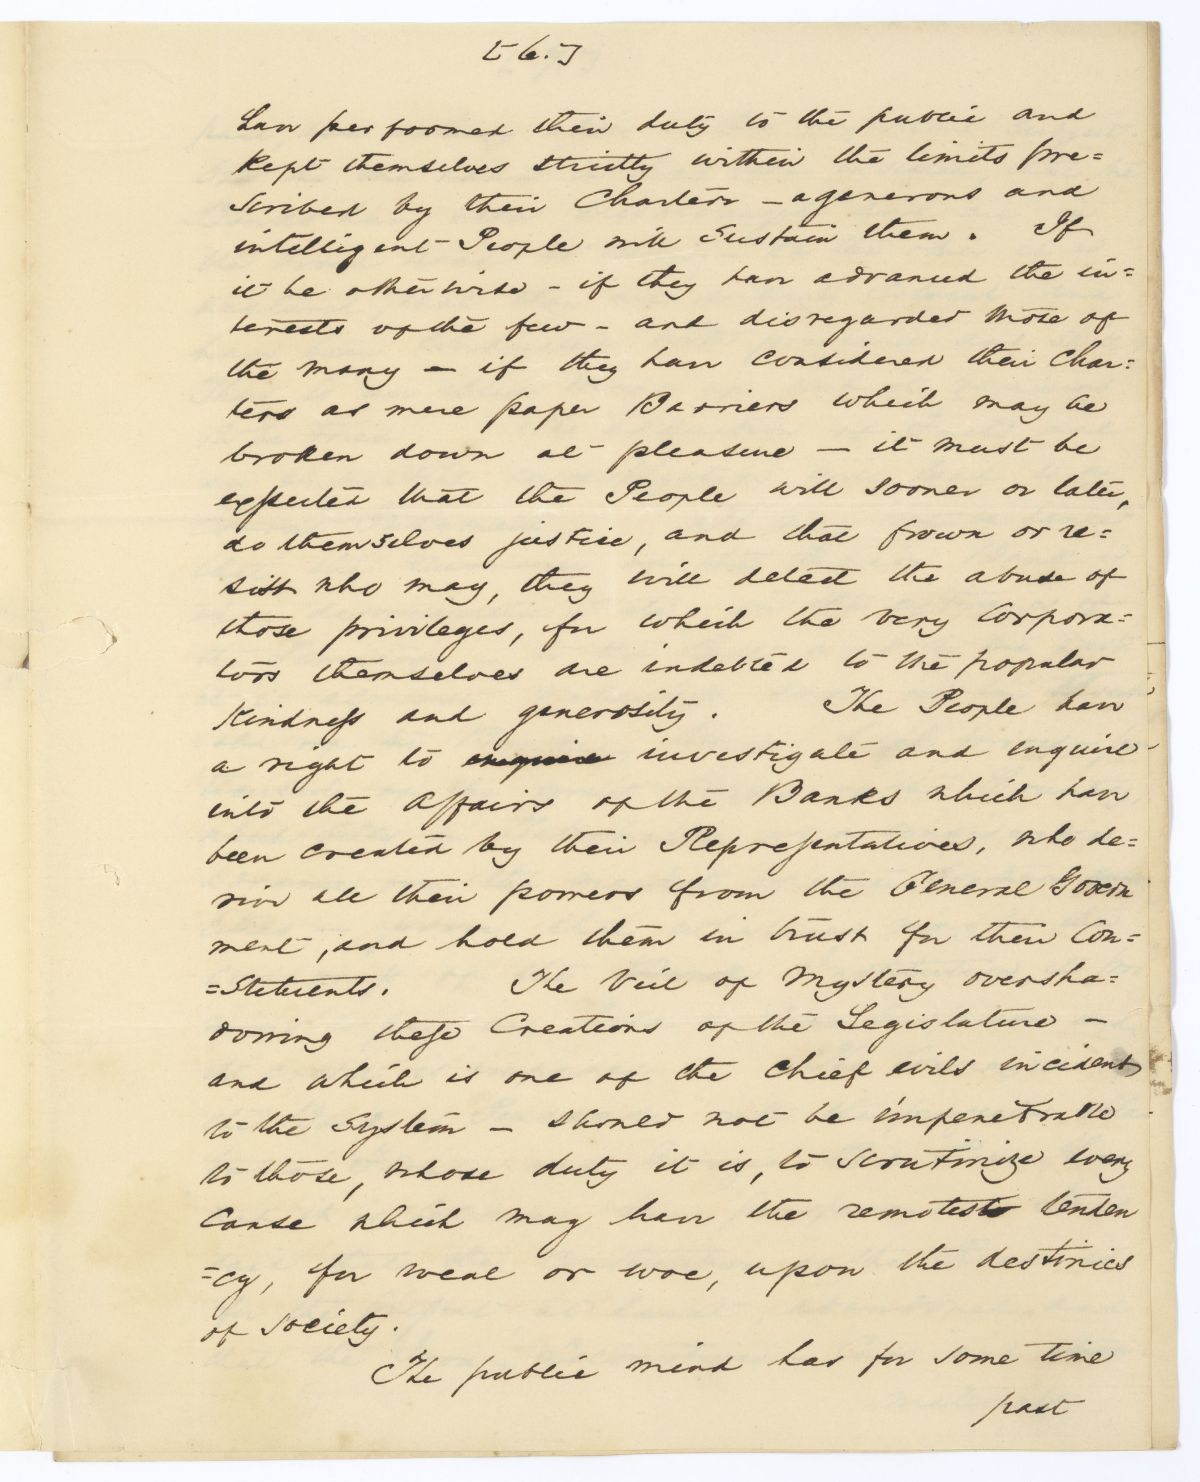 [6.]
have performed their duty to the public and
Kept themselves strictly within the limits pre=
scribed by their Charters – a generous and
intelligent People will Sustain them. If
it be otherwise – if they have advanced the in=
terests of the few – and disregarded those of
the many – if they have considered their Char=
ters as mere paper Barriers which may be
broken down at pleasure – it must be
expected that the People will sooner or later,
do themselves justice, and that frown or re=
sist who may, they will detect the abuse of
those privileges, for which the very Corpora=
tors themselves are indebted to the popular
Kindness and generosity. The People have
a right to enquire investigate and enquire
into the affairs of the Banks which have
been created by their Representatives, who de=
rive all their powers from the General Govern
ment, and hold them in trust for their Con=
=Stituents. The Veil of Mystery oversha=
dowing these Creations of the Legislature –
and which is one of the chief evils incident
to the System – should not be impenetrable
to those, whose duty it is, to scrutinize every
Cause which may have the remotest tenden
=cy, for weal or woe, upon the destinies
of society.
The public mind has for some time
past